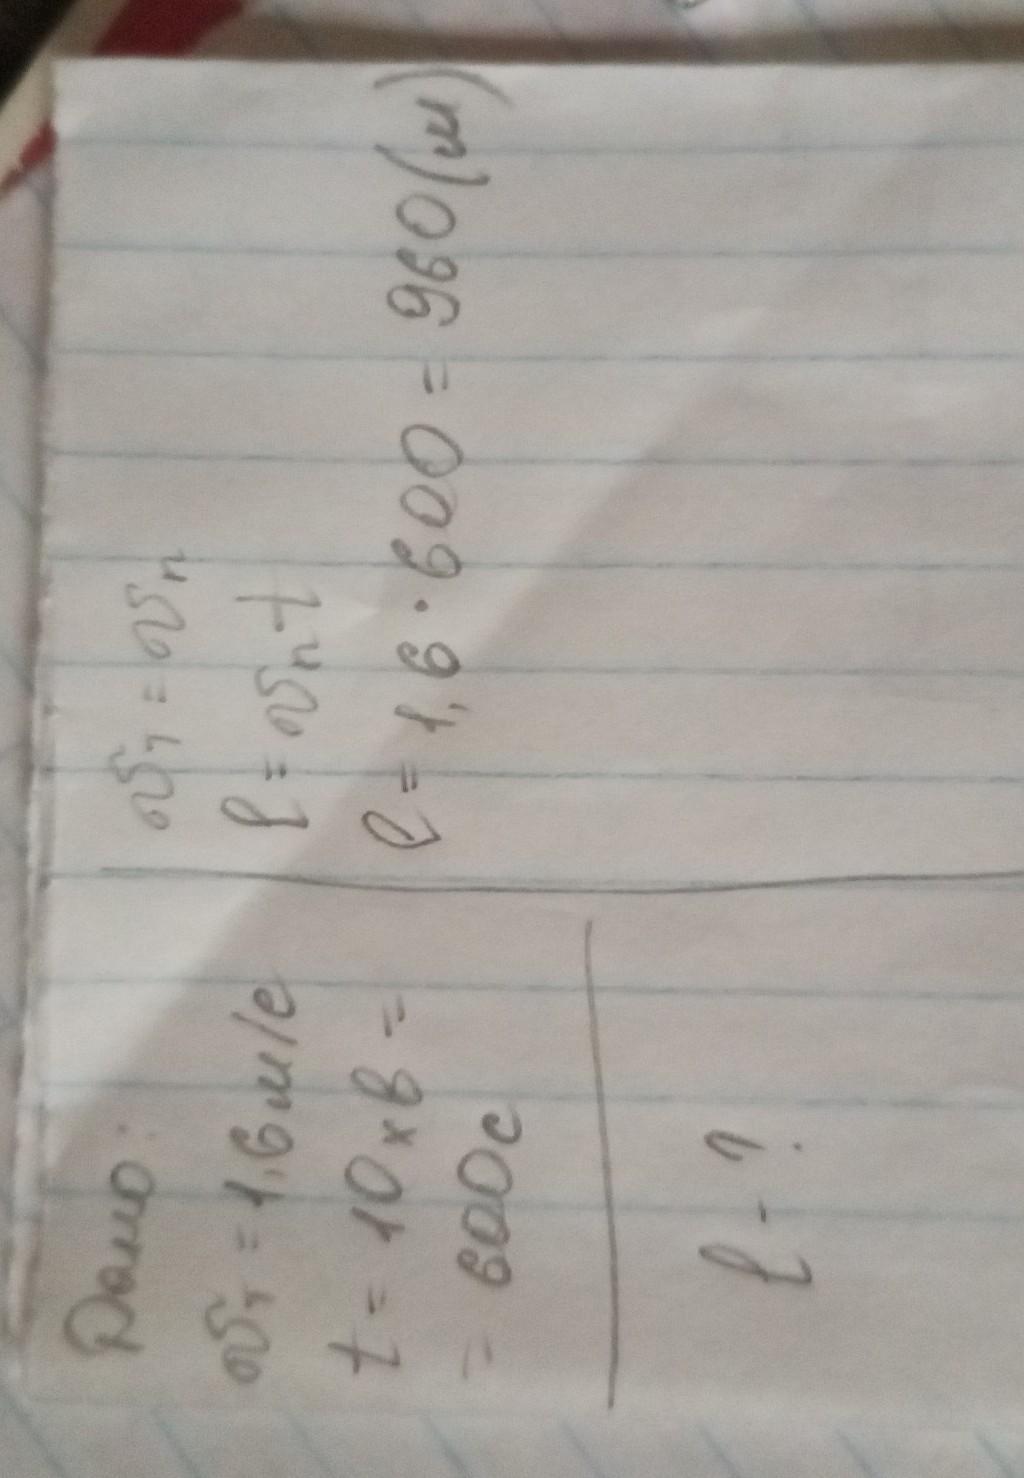 Дано:
υт = 1,6 м/с
t = 10 хв =
= 600 с
l - ?
υт = υп
l = υп t
l = 1,6 · 600 = 960 (м)